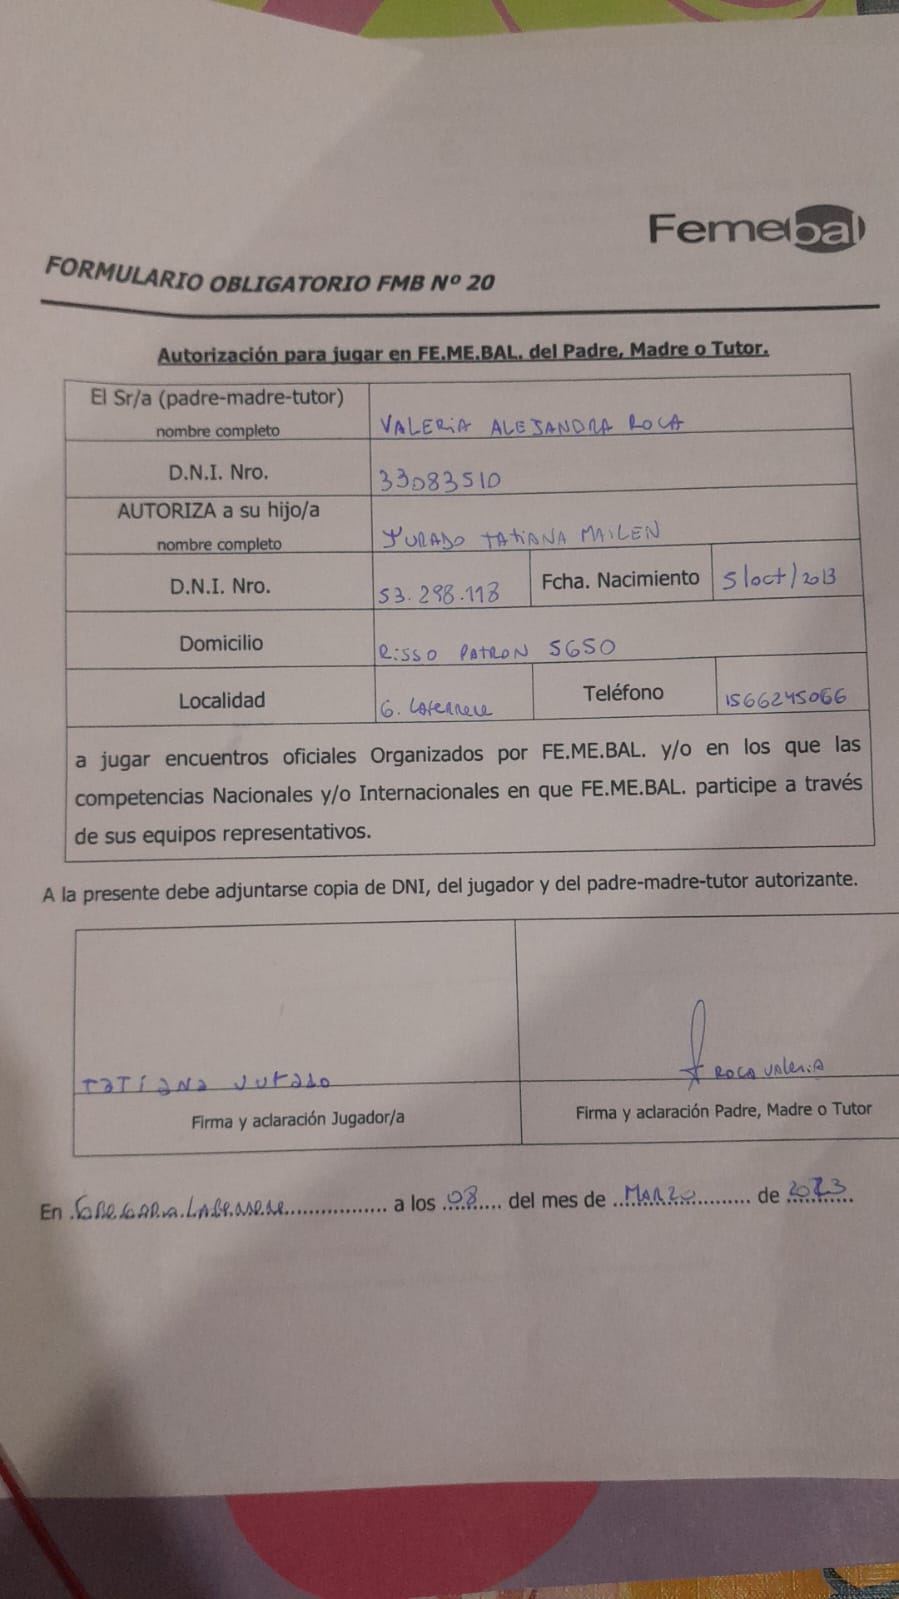 Femebal
FORMULARIO OBLIGATORIO FMB Nº 20
Autorización para jugar en FE.ME.BAL. del Padre, Madre o Tutor.
El Sr/a (padre-madre-tutor)
nombre completo
VALERIA ALEJANDRA ROCA
D.N.I. Nro.
33083510
AUTORIZA a su hijo/a
nombre completo
JURADO TATIANA MAILEN
D.N.I. Nro.
53.298.118
Fcha. Nacimiento
5/oct/2013
Domicilio
Risso PATRON 5650
Localidad
G. Laferrere
Teléfono
1566245066
a jugar encuentros oficiales Organizados por FE.ME.BAL. y/o en los que las
competencias Nacionales y/o Internacionales en que FE.ME.BAL. participe a través
de sus equipos representativos.
A la presente debe adjuntarse copia de DNI, del jugador y del padre-madre-tutor autorizante.
TaTiaNa Jurado
ROCA VALERIA
Firma y aclaración Jugador/a
Firma y aclaración Padre, Madre o Tutor
En Gregorio Laferrere a los 08 del mes de MARZO de 2023